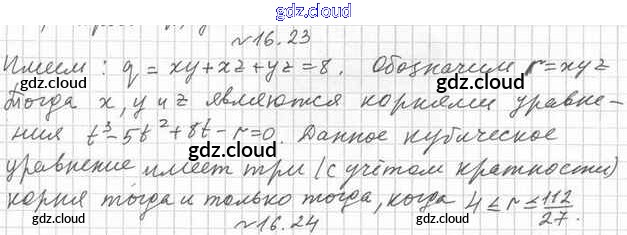 gdz.cloud
№16.23
Имеем: q = xy+xz+yz=8. Обозначим r=xyz
gdz.cloud
gdz.cloud
Тогда x, y и z являются корнями уравне-
ния t³-5t²+8t-r=0. Данное кубическое
gdz.cloud
уравнение имеет три (с учётом кратности)
корня тогда и только тогда, когда 4 ≤ r ≤ 112/27.
gdz.cloud
gdz.cloud
№16.24